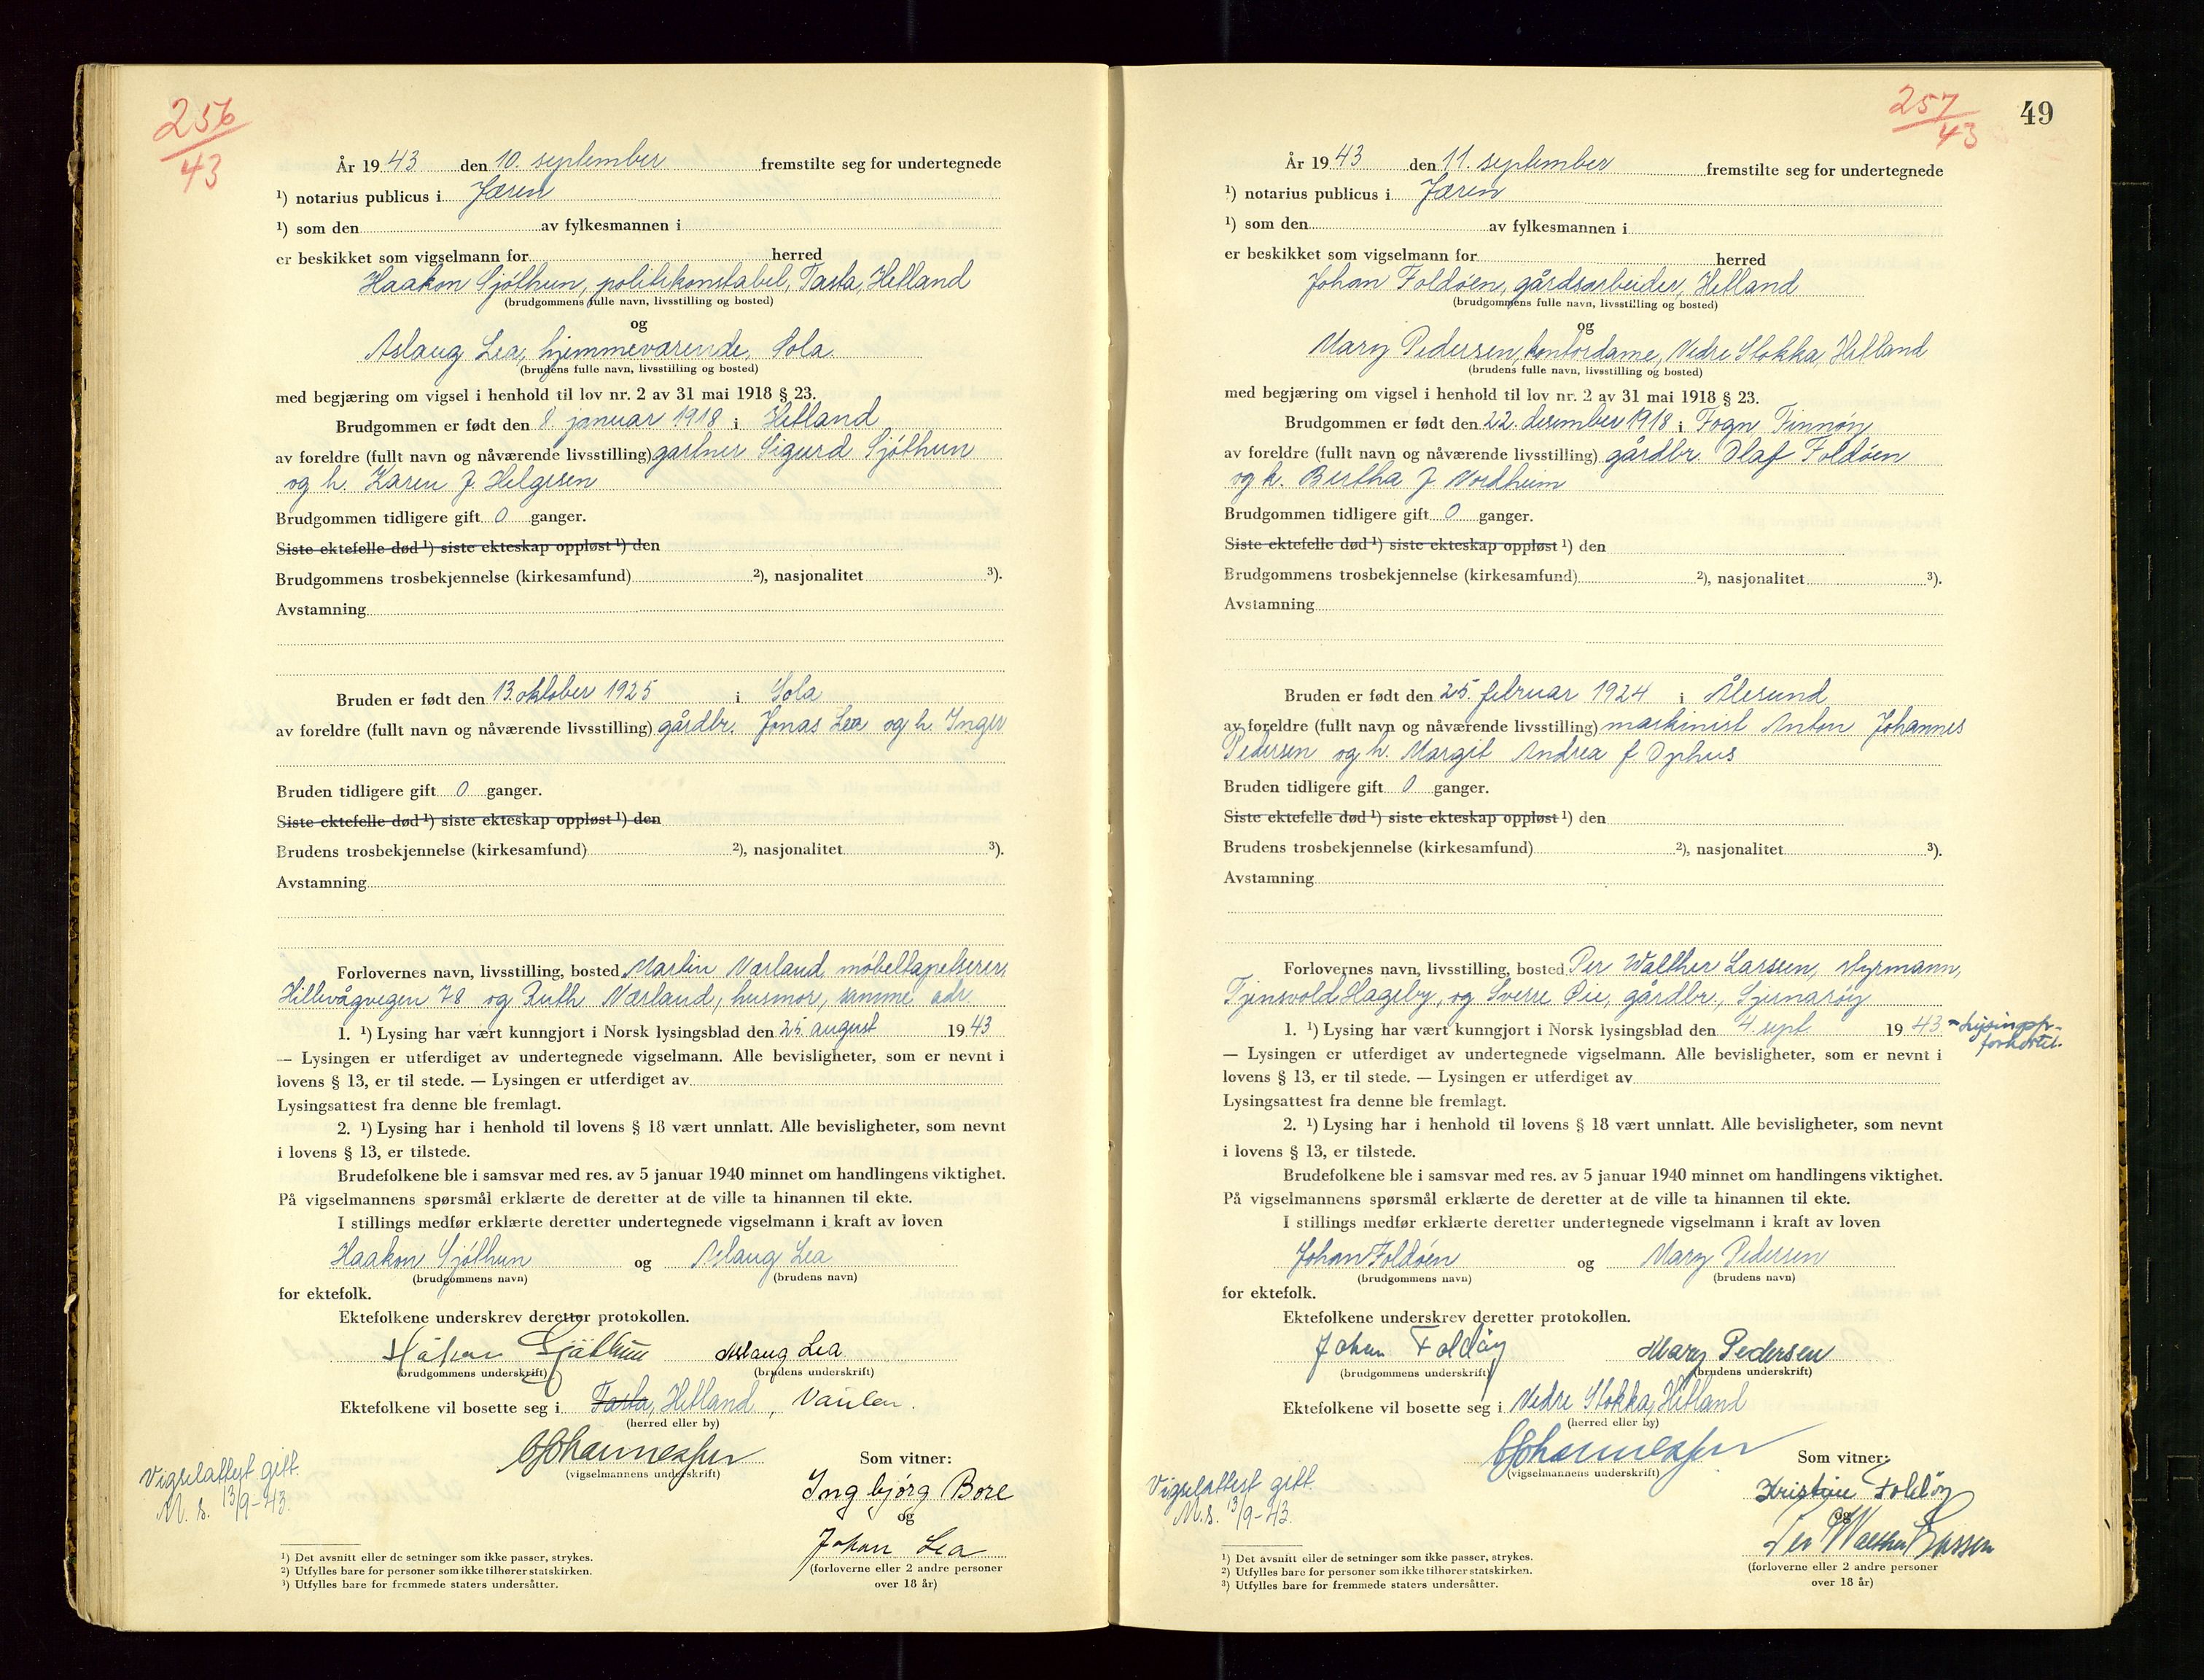 256
43
År 1943 den 10. september fremstilte seg for undertegnede
¹) notarius publicus i Jæren
¹) som den av fylkesmannen i
er beskikket som vigselmann for herred
Haakon Sjøthun, politikonstabel, Tasta, Hetland
(brudgommens fulle navn, livsstilling og bosted)
og
Aslaug Lea, hjemmeværende, Sola
(brudens fulle navn, livsstilling og bosted)
med begjæring om vigsel i henhold til lov nr. 2 av 31 mai 1918 § 23.
Brudgommen er født den 8. januar 1918 i Hetland
av foreldre (fullt navn og nåværende livsstilling) gartner Sigurd Sjøthun
og h. Karen f. Helgesen
Brudgommen tidligere gift 0 ganger.
Siste ektefelle død ¹) siste ekteskap oppløst ¹) den
Brudgommens trosbekjennelse (kirkesamfund) ²), nasjonalitet ³).
Avstamning
Bruden er født den 13. oktober 1925 i Sola
av foreldre (fullt navn og nåværende livsstilling) gårdbr. Jonas Lea og h. Inger
Bruden tidligere gift 0 ganger.
Siste ektefelle død ¹) siste ekteskap oppløst ¹) den
Brudens trosbekjennelse (kirkesamfund) ²), nasjonalitet ³).
Avstamning
Forlovernes navn, livsstilling, bosted Martin Værland, møbeltapetserer,
Hillevågvegen 78 og Ruth Værland, husmor, samme adr.
1. ¹) Lysing har vært kunngjort i Norsk lysingsblad den 25. august 1943
— Lysingen er utferdiget av undertegnede vigselmann. Alle bevisligheter, som er nevnt i
lovens § 13, er til stede. — Lysingen er utferdiget av
Lysingsattest fra denne ble fremlagt.
2. ¹) Lysing har i henhold til lovens § 18 vært unnlatt. Alle bevisligheter, som nevnt
i lovens § 13, er tilstede.
Brudefolkene ble i samsvar med res. av 5 januar 1940 minnet om handlingens viktighet.
På vigselmannens spørsmål erklærte de deretter at de ville ta hinannen til ekte.
I stillings medfør erklærte deretter undertegnede vigselmann i kraft av loven
Haakon Sjøthun og Aslaug Lea
(brudgommens navn) (brudens navn)
for ektefolk.
Ektefolkene underskrev deretter protokollen.
Håkon Sjøthun Aslaug Lea
(brudgommens underskrift) (brudens underskrift)
Ektefolkene vil bosette seg i Tasta, Hetland, Vaulen.
(herred eller by)
(vigselmannens underskrift)
Som vitner:
Ingbjørg Bore
og
Johan Lea
(forloverne eller 2 andre personer
over 18 år)
Vigselattest gitt.
M. s. 13/9-43.
¹) Det avsnitt eller de setninger som ikke passer, strykes.
²) Utfylles bare for personer som ikke tilhører statskirken.
³) Utfylles bare for fremmede staters undersåtter.
257
43
49
År 1943 den 11. september fremstilte seg for undertegnede
¹) notarius publicus i Jæren
¹) som den av fylkesmannen i
er beskikket som vigselmann for herred
Johan Foldøen, gårdsarbeider, Hetland
(brudgommens fulle navn, livsstilling og bosted)
og
Mary Pedersen, kontordame, Vedre Stokka, Hetland
(brudens fulle navn, livsstilling og bosted)
med begjæring om vigsel i henhold til lov nr. 2 av 31 mai 1918 § 23.
Brudgommen er født den 22. desember 1918 i Fogn, Finnøy
av foreldre (fullt navn og nåværende livsstilling) gårdbr. Olaf Foldøen
og h. Bertha f. Nordheim
Brudgommen tidligere gift 0 ganger.
Siste ektefelle død ¹) siste ekteskap oppløst ¹) den
Brudgommens trosbekjennelse (kirkesamfund) ²), nasjonalitet ³).
Avstamning
Bruden er født den 25. februar 1924 i Ålesund
av foreldre (fullt navn og nåværende livsstilling) maskinist Anton Johannes
Pedersen og h. Margit Andrea f. Ophus
Bruden tidligere gift 0 ganger.
Siste ektefelle død ¹) siste ekteskap oppløst ¹) den
Brudens trosbekjennelse (kirkesamfund) ²), nasjonalitet ³).
Avstamning
Forlovernes navn, livsstilling, bosted Per Walther Larsen, styrmann,
Tjensvold Hageby, og Sverre Øie, gårdbr., Sjernarøy
1. ¹) Lysing har vært kunngjort i Norsk lysingsblad den 4. sept. 1943
— Lysingen er utferdiget av undertegnede vigselmann. Alle bevisligheter, som er nevnt i
lovens § 13, er til stede. — Lysingen er utferdiget av
Lysingsattest fra denne ble fremlagt.
2. ¹) Lysing har i henhold til lovens § 18 vært unnlatt. Alle bevisligheter, som nevnt
i lovens § 13, er tilstede.
Brudefolkene ble i samsvar med res. av 5 januar 1940 minnet om handlingens viktighet.
På vigselmannens spørsmål erklærte de deretter at de ville ta hinannen til ekte.
I stillings medfør erklærte deretter undertegnede vigselmann i kraft av loven
Johan Foldøen og Mary Pedersen
(brudgommens navn) (brudens navn)
for ektefolk.
Ektefolkene underskrev deretter protokollen.
Johan Foldøy Mary Pedersen
(brudgommens underskrift) (brudens underskrift)
Ektefolkene vil bosette seg i Vedre Stokka, Hetland
(herred eller by)
(vigselmannens underskrift)
Som vitner:
Kristine Foldøy
og
Per Walther Larssen
(forloverne eller 2 andre personer
over 18 år)
Vigselattest gitt.
M. s. 13/9-43.
¹) Det avsnitt eller de setninger som ikke passer, strykes.
²) Utfylles bare for personer som ikke tilhører statskirken.
³) Utfylles bare for fremmede staters undersåtter.